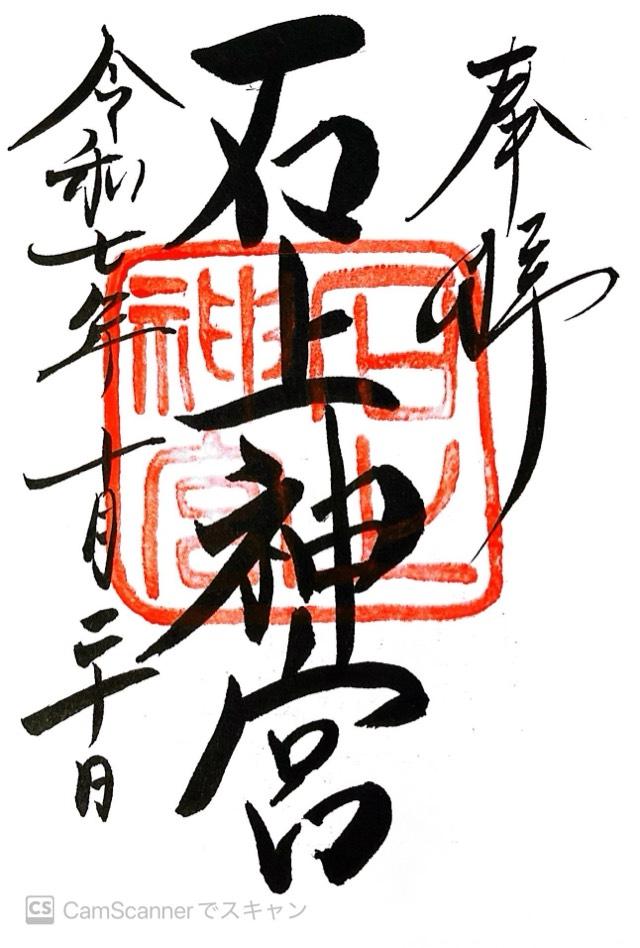 奉拝
石上神宮
石上神宮
令和七年十月二十日
CS CamScannerでスキャン